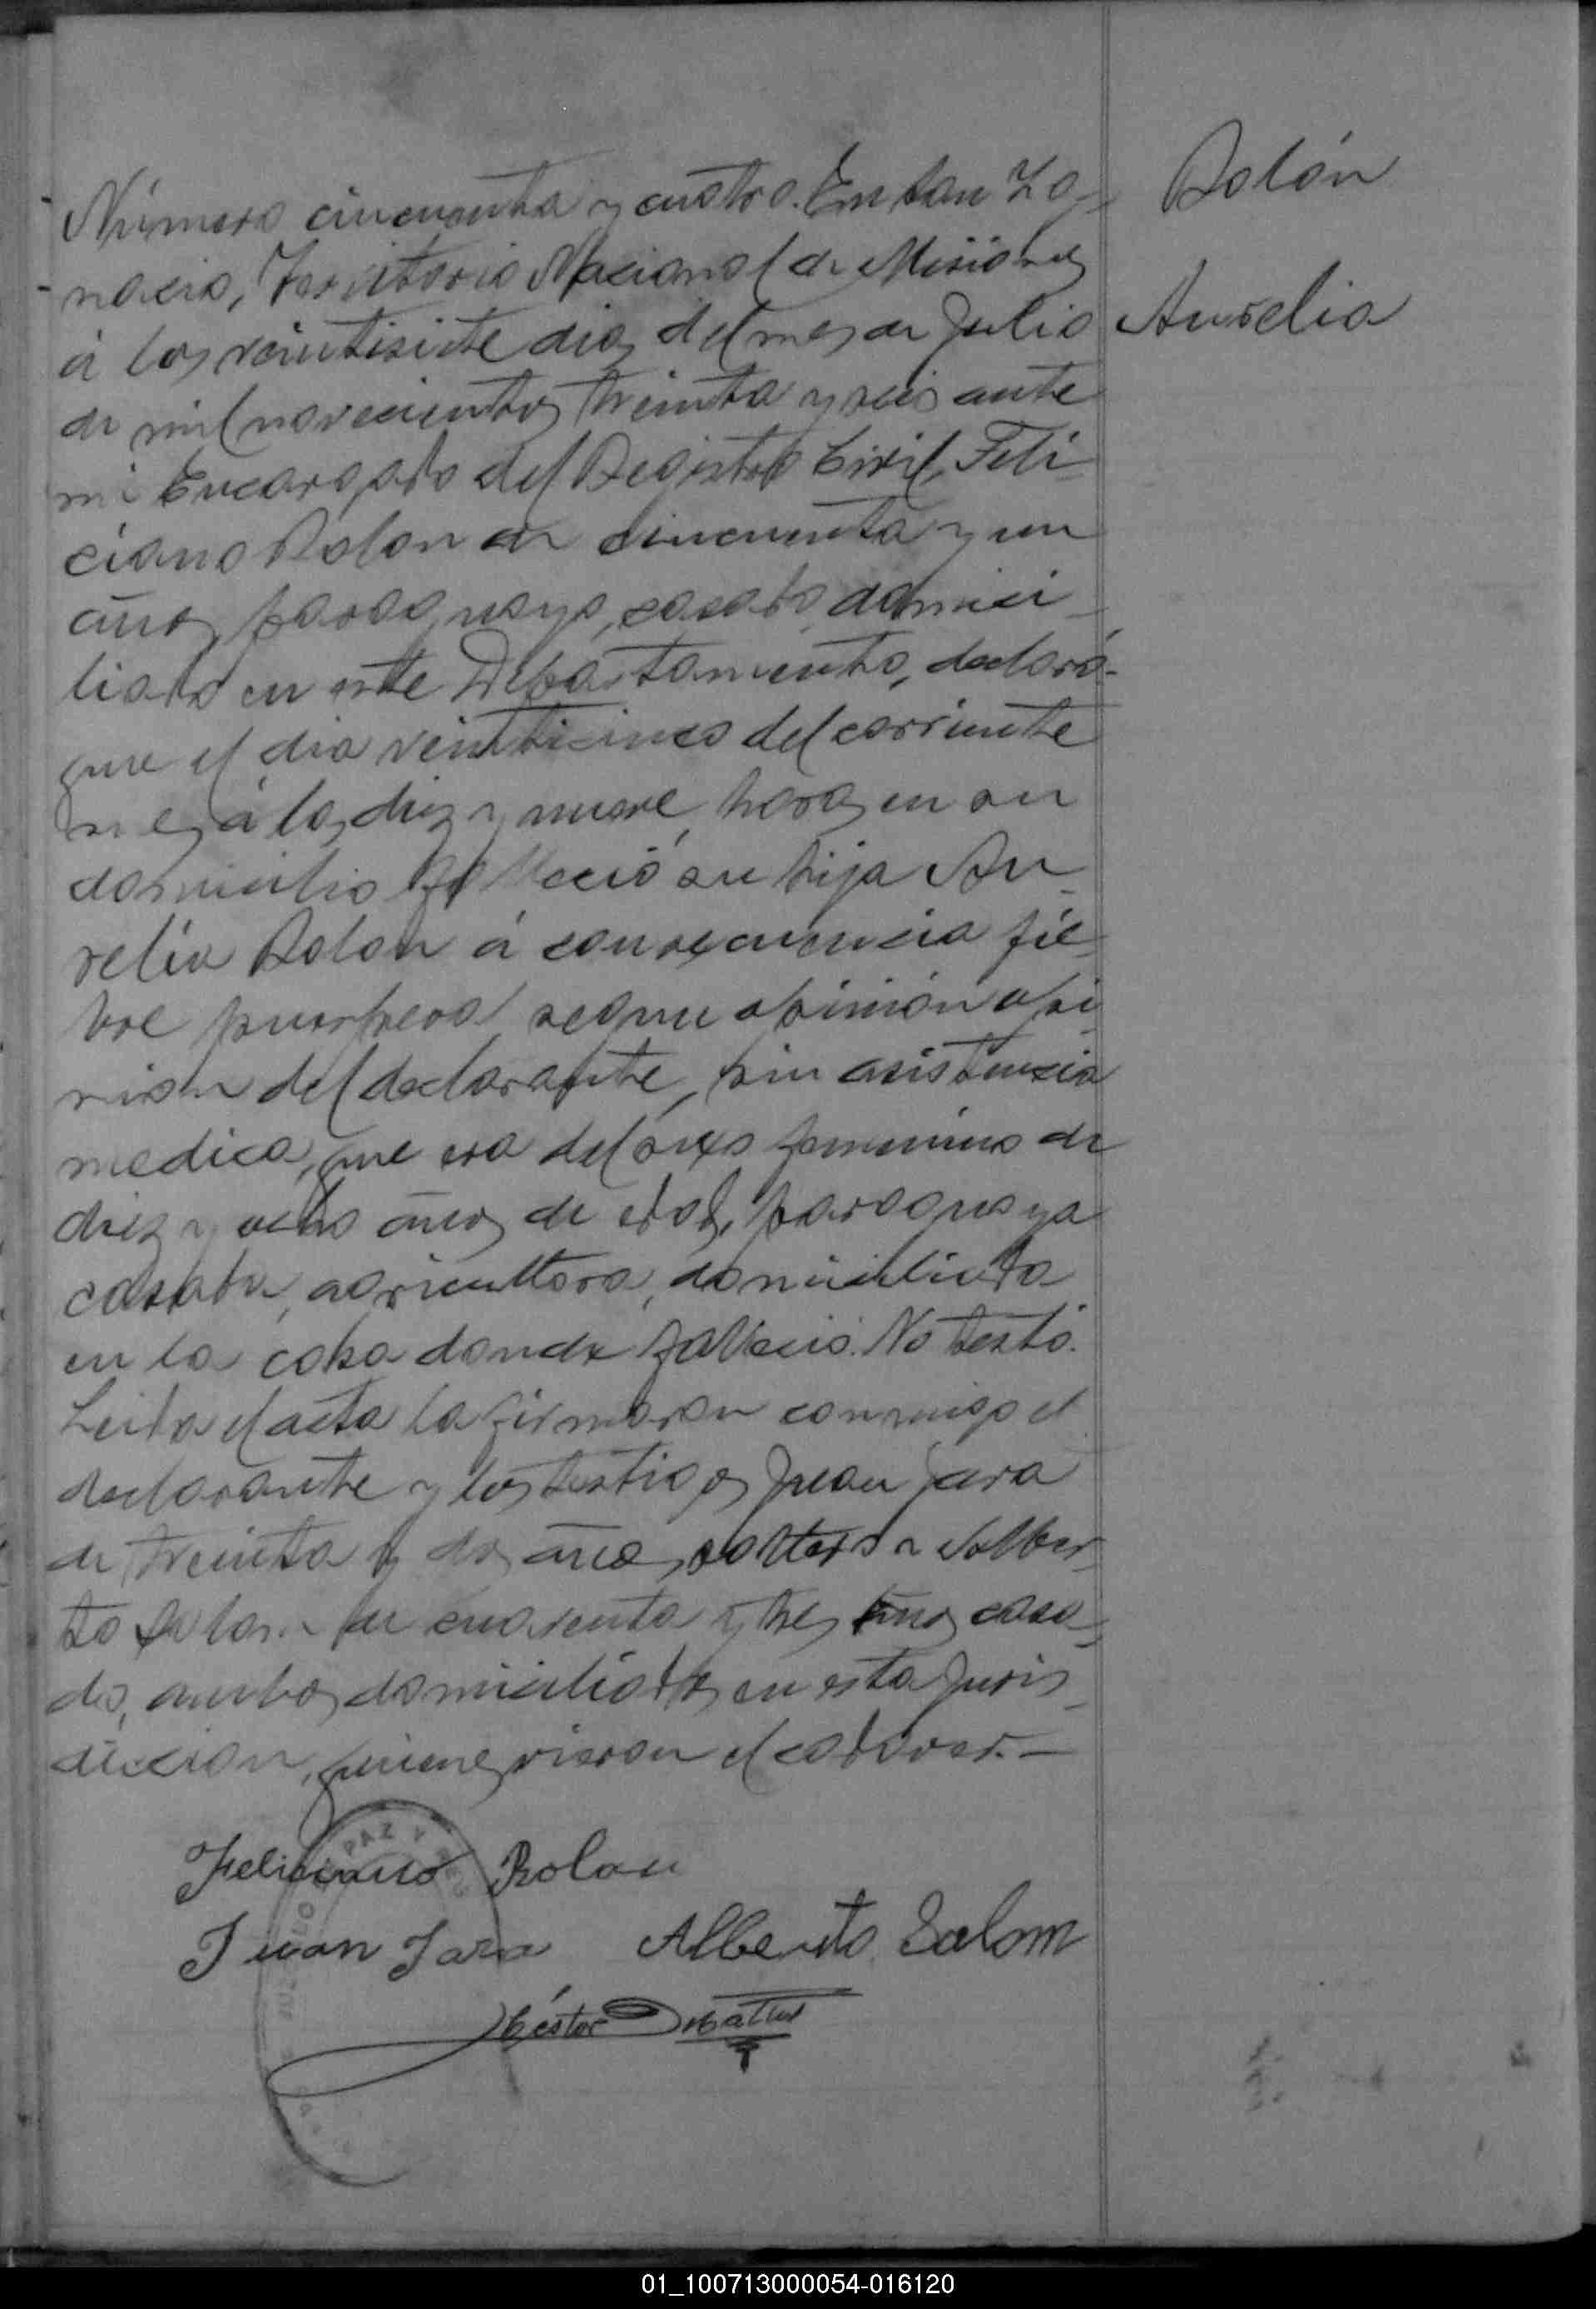 Número cincuenta y cuatro. En San Ig-
nacio, Territorio Nacional de Misiones
á los veintisiete dias del mes de Julio
de mil novecientos treinta y seis ante
mi Encargado del Registro Civil, Feli-
ciano Rolon de cincuenta y un
años, paraguayo, casado, domici-
liado en este Departamento, declaró-
que el dia veinticinco del corriente
mes á las diez y nueve horas en su
domicilio falleció su hija Au-
relia Rolon á consecuencia fie-
bre puerperal segun opinión opi-
nion del declarante, sin asistencia
medica, que era del sexo femenino de
diez y ocho años de edad, paraguaya
casada, agricultora, domiciliada
en la casa donde falleció. No testó.
Leida el acta la firmaron conmigo el
declarante y los testigos Juan Jara
de treinta y dos años, soltero y Alber-
to Salom de cuarenta y tres años casa-
do, ambos domiciliados en esta Juris-
diccion, quienes vieron el cadaver.-
Rolón
Aurelia
Feliciano Rolon
Juan Jara Alberto Salom
Héstor
PAZ Y
01_100713000054-016120